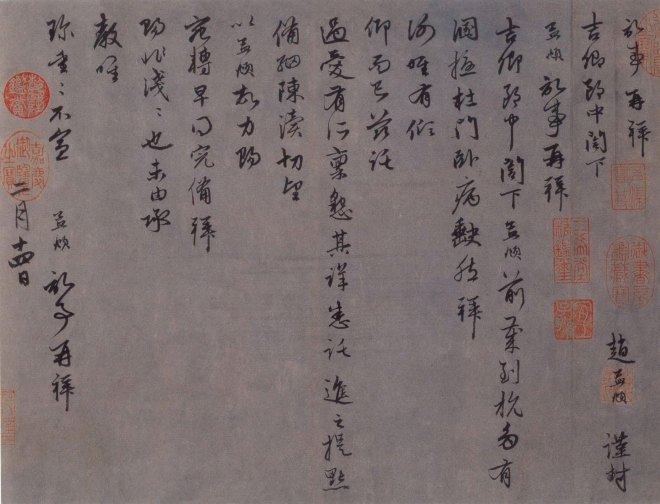 記事再拜
吉卿郎中閣下
趙孟頫 謹封
孟頫 記事再拜
吉卿郎中閣下孟頫前歲到杭尚有
杜門臥病缺於拜
唯有傾
仰而已茲託
過愛有所稟懇其詳悉託進之提點
備細陳瀆切望
以孟頫故力賜
宛轉早得完備拜
賜非淺淺也未由承
教唯
珍重珍重不宣 孟頫記事再拜
二月十四日